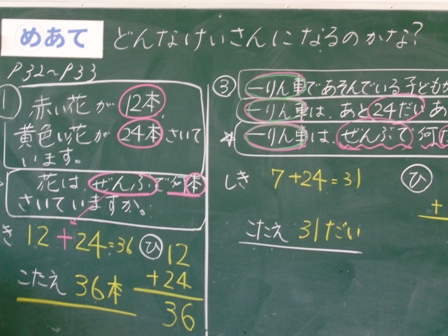 めあて どんなけいさんになるのかな?
P32〜P33
①
赤い花が12本、
黄色い花が24本さいて
います。
花は、ぜんぶで何本
さいていますか。
き 12+24=36
こたえ 36本
ひ
12
+24
36
③
一りん車であそんでいる子どもが
一りん車は、あと24だいあ
一りん車は、ぜんぶで何
しき 7+24=31
こたえ 31だい
ひ
+